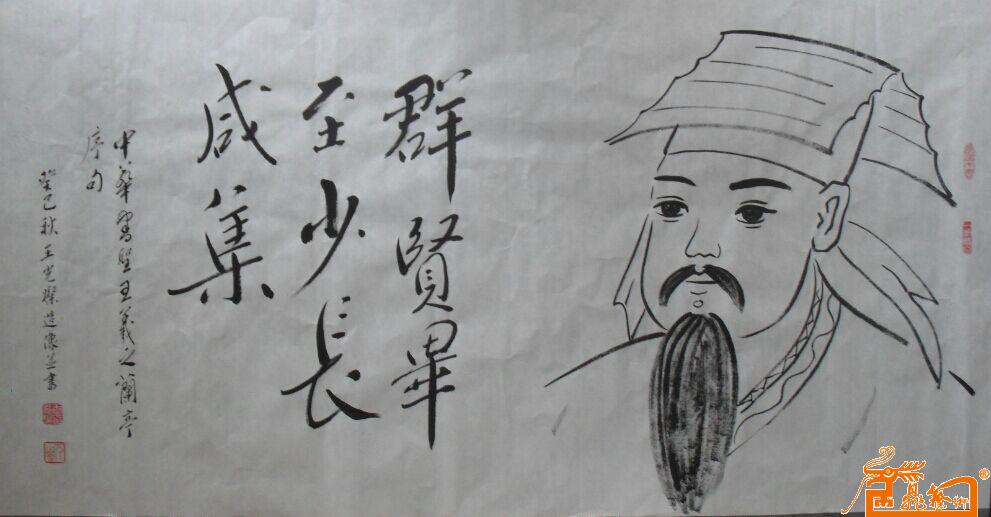 群賢畢
至少長
咸集
中華書聖王羲之蘭亭
序句
癸巳秋王光燦造像並書